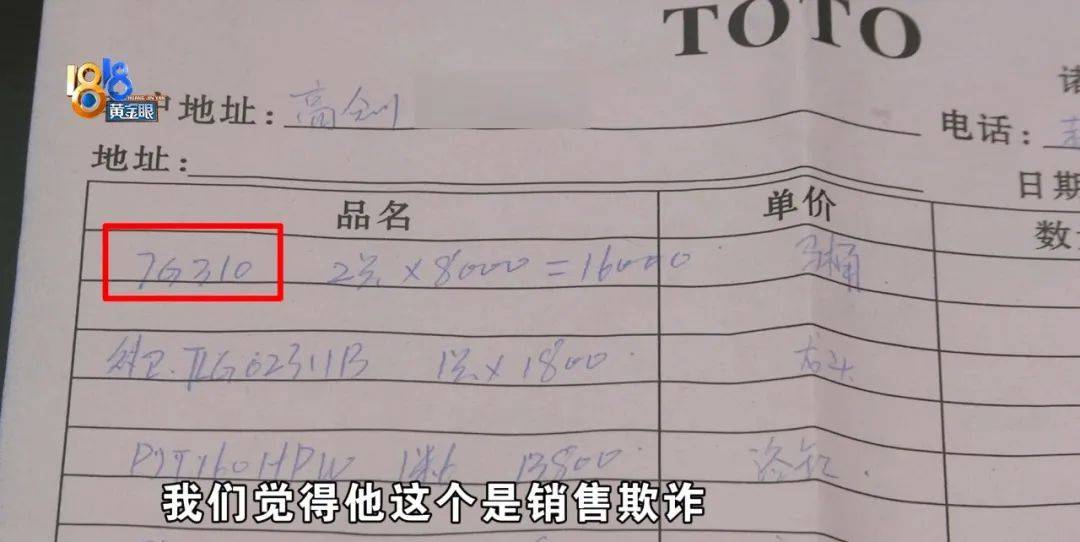 TOTO
1818
黄金眼
户地址:
电话:
地址:
日期
品名 单价 数
7G310 2套×8000=16000 马桶
TLG02311B 1套×1800 龙头
PJY160HPW 13800 浴缸
我们觉得他这个是销售欺诈